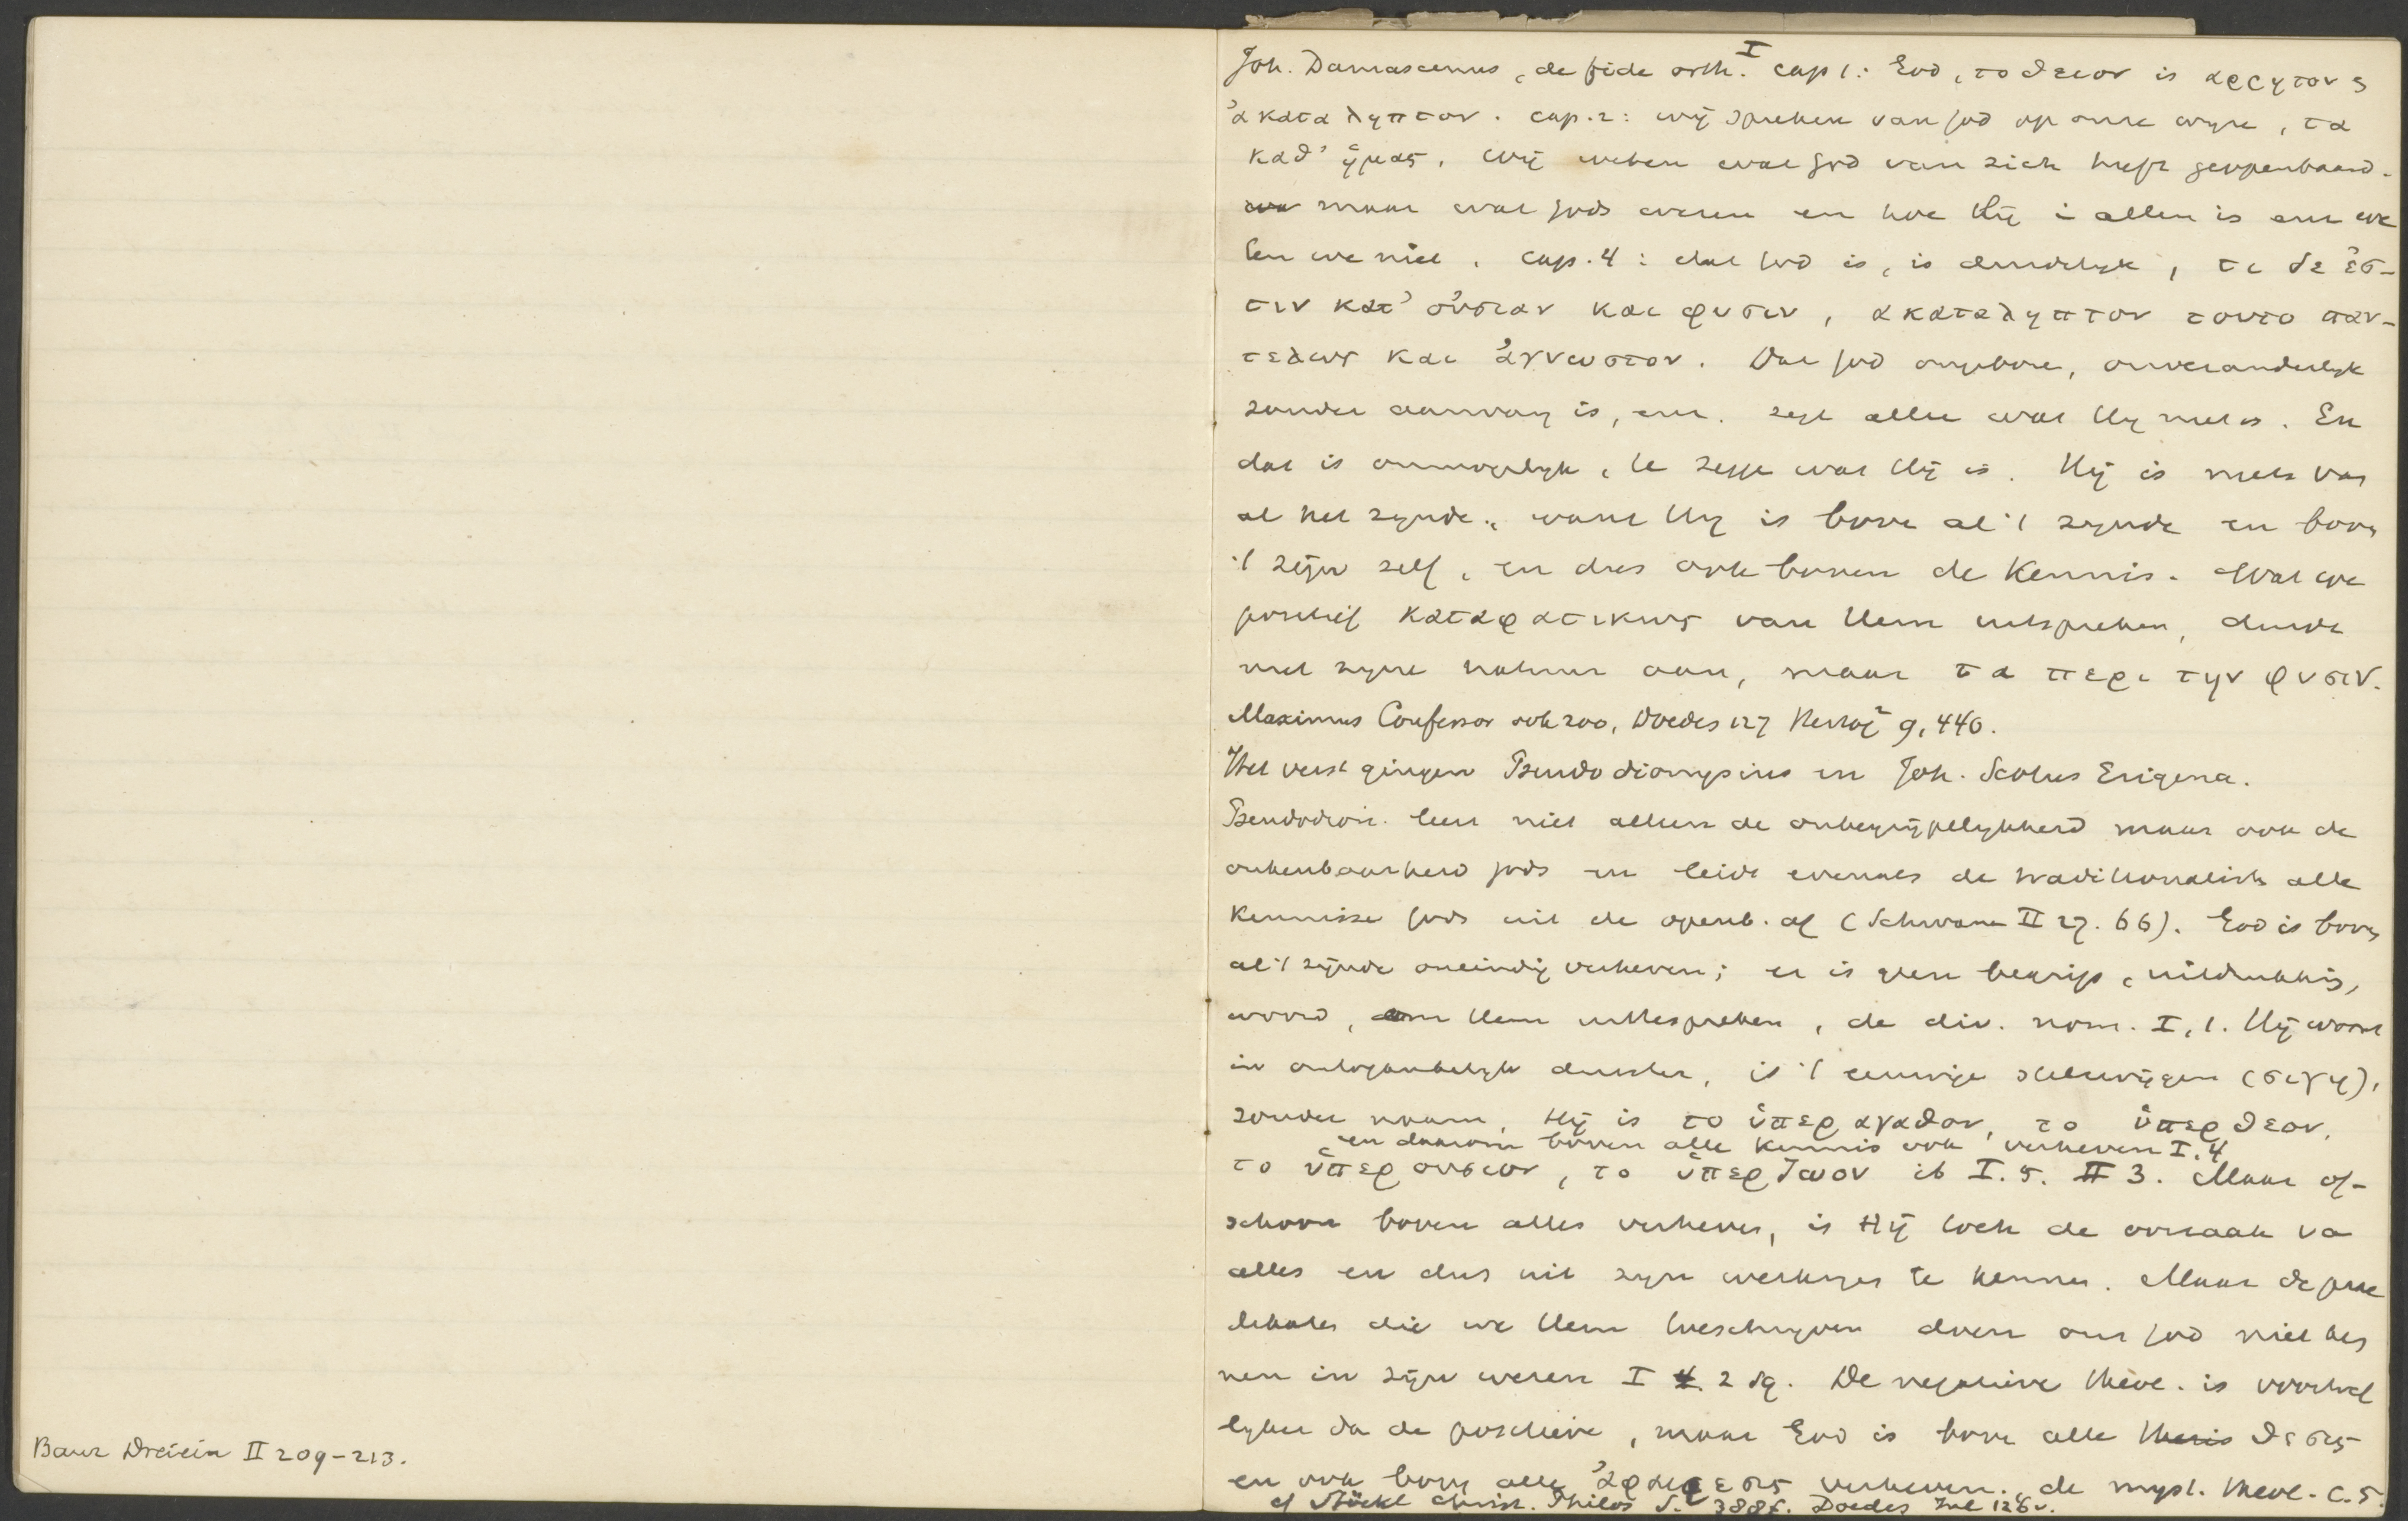 Baur Dreiein II 209-213.
Joh. Damascenus, de fide orth. I cap 1: God, το θειον is αρρητον &
ἀκαταληπτον. cap. 2: wij spreken van God op onze wyze, τα
καθ' ἡμας. Wij weten wat God van zich heeft geopenbaard.
maar wat Gods wezen en hoe Hij in allen is enz we
ten we niet. Cap. 4: dat God is, is duidelyk, τι δε ἐσ-
τιν κατ' οὐσιαν και φυσιν, ακαταληπτον τουτο παν-
τελως και ἀγνωστον. Dat God ongebore, onveranderlyk
zonder aanvang is, enz. zegt alleen wat Hy niet is. En
dat is onmogelyk, te zegge wat Hij is. Hij is niets van
al het zynde, want Hy is bove al 't zynde en boven
't zijn zelf, en dus ook boven de kennis. Wat we
positief καταφατικως van Hem uitspreken, duidt
niet zyne natuur aan, maar τα περι την φυσιν.
Maximus Confessor ook zoo, Doedes 127 Herzog² 9, 440.
Het verst gingen Pseudodionysius en Joh. Scotus Erigena.
Pseudodion. leert niet alleen de onbegrijpelykheid maar ook de
onkenbaarheid Gods en leidt evenals de traditionalists alle
kennisse Gods uit de openb. af (Schwane II 27. 66). God is boven
al 't zijnde oneindig verheven; er is geen begrip, uitdrukking,
woord, om Hem uittespreken, de div. nom. I, 1. Hij woont
in ontoegankelyk duister, is 't eeuwige stilzwijgen (σιγη),
zonder naam, Hij is το ὑπερ αγαθον, το ὑπερ θεον,
en daarom boven alle kennis ook verheven I. 4
το ὑπερ ουσιον, το ὑπερ ζωον ib I. 5. II 3. Maar of-
schoon boven alles verheven, is Hij toch de oorzaak van
alles en dus uit zyn werkingen te kennen. Maar de prae
dikaten die we Hem toeschryven doen ons God niet ken
nen in zijn wezen I 2 sq. De negatieve theol. is voortref
lyker dan de positieve, maar God is boven alle θεσις
en ook boven alle ἀφαιρεσις verheven. de myst. theol. c. 5.
cf Stöckl christ. Philos S. 388f. Doedes Inl 126v.